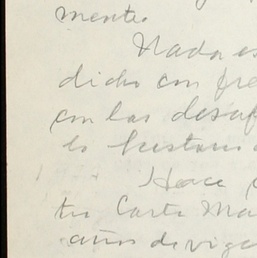 mente.
Nada es
dicho con fre
con las desaf
la historia
Hace
tra Carta Ma
años de vige